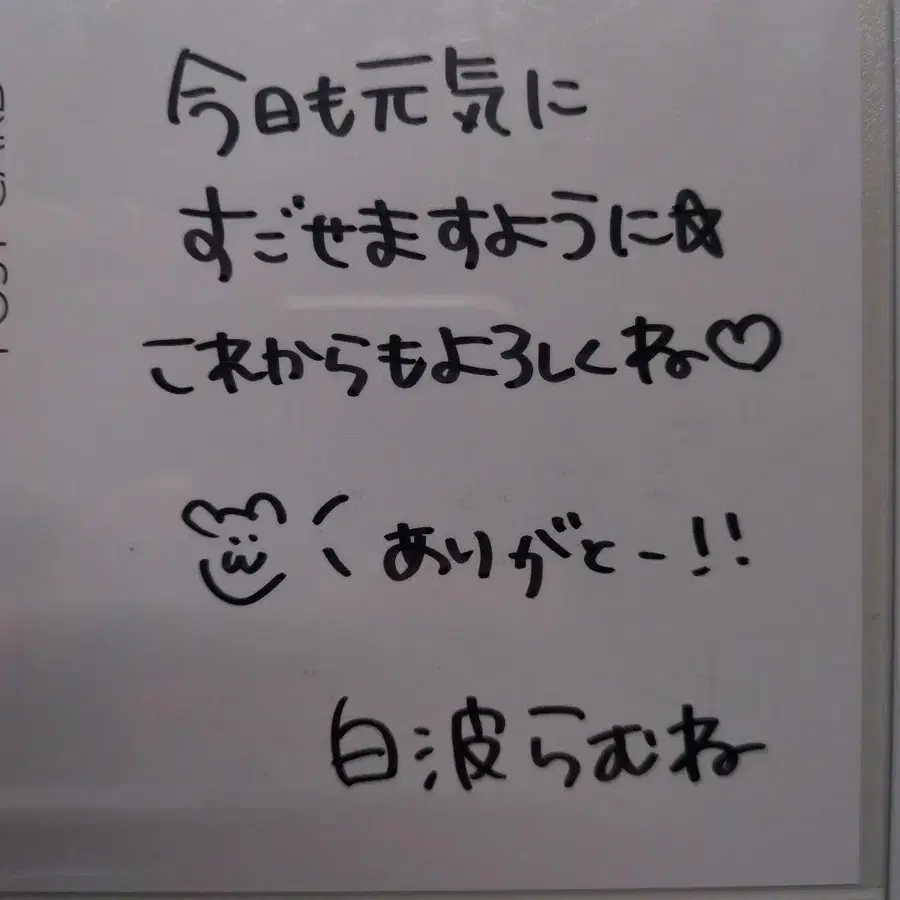 POST CARD
今日も元気に
すごせますように☆
これからもよろしくね♡
ありがとー!!
白波らむね